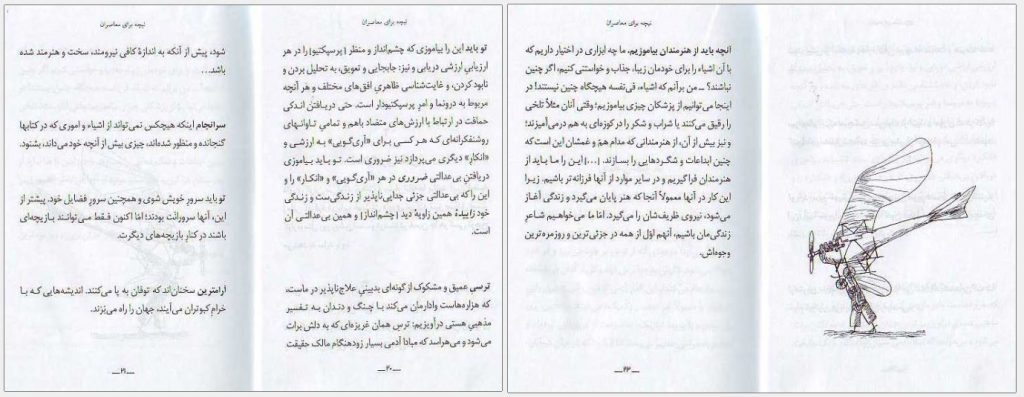 نیچه برای معاصران
تو باید این را بیاموزی که چشم‌انداز و منظر [پرسپکتیو] را در هر
ارزیابیِ ارزشی دریابی و نیز: جابجایی و تعویق، به تحلیل بردن و
نابود کردن، و غایت‌شناسی ظاهری افق‌های مختلف و هر آنچه
مربوط به درونما و امرِ پرسپکتیودار است. حتی دریافتن اندکی
حماقت در ارتباط با ارزش‌های متضاد باهم و تمامیِ تاوانهای
روشنفکرانه‌ای که هر کسی برای «آری‌گویی» به ارزشی و
«انکار» دیگری می‌پردازد نیز ضروری است. تو باید بیاموزی
دریافتنِ بی‌عدالتی ضروری در هر «آری‌گویی» و «انکار» را و
این را که بی‌عدالتی جزئی جدایی‌ناپذیر از زندگی‌ست و زندگی
خود زاییدهٔ همین زاویهٔ دید [چشم‌انداز] و همین بی‌عدالتیِ آن
است.
ترسی عمیق و مشکوک از گونه‌ای بدبینیِ علاج‌ناپذیر در ماست،
که هزاره‌هاست وادارمان می‌کند با چنگ و دندان به تفسیر
مذهبیِ هستی درآویزیم: ترسِ همان غریزه‌ای که به دلش برات
می‌شود و می‌هراسد که مبادا آدمی بسیار زودهنگام مالک حقیقت
ــ ۲۰ ــ
نیچه برای معاصران
شود، پیش از آنکه به اندازهٔ کافی نیرومند، سخت و هنرمند شده
باشد...
سرانجام اینکه هیچکس نمی‌تواند از اشیاء و اموری که در کتابها
گنجانده و منظور شده‌اند، چیزی بیش از آنچه خود می‌داند، بشنود.
تو باید سرورِ خویش شوی و همچنین سرورِ فضایل خود. پیشتر از
این، آنها سرورانت بودند؛ امّا اکنون فقط می‌توانند بازیچه‌ای
باشند در کنارِ بازیچه‌های دیگرت.
آرامترین سخنان‌اند که توفان به پا می‌کنند. اندیشه‌هایی که با
خرامِ کبوتران می‌آیند، جهان را راه می‌بَرند.
ــ ۲۱ ــ
نیچه برای معاصران
آنچه باید از هنرمندان بیاموزیم. ما چه ابزاری در اختیار داریم که
با آن اشیاء را برای خودمان زیبا، جذاب و خواستنی کنیم، اگر چنین
نباشند؟ ـ من برآنم که اشیاء، فی‌نفسه هیچگاه چنین نیستند! در
اینجا می‌توانیم از پزشکان چیزی بیاموزیم؛ وقتی آنان مثلاً تلخی
را رقیق می‌کنند یا شراب و شکر را در کوزه‌ای به هم درمی‌آمیزند؛
و نیز بیش از آن، از هنرمندانی که مدام همّ و غمشان این است که
چنین ابداعات و شگردهایی را بسازند. [...] این را ما باید از
هنرمندان فراگیریم و در سایر موارد از آنها فرزانه‌تر باشیم. زیرا
این کار در آنها معمولاً آنجا که هنر پایان می‌گیرد و زندگی آغاز
می‌شود، نیروی ظریف‌شان را می‌گیرد. امّا ما می‌خواهیم شاعرِ
زندگی‌مان باشیم، آنهم اوّل از همه در جزئی‌ترین و روزمره‌ترین
وجوه‌اش.
ــ ۲۳ ــ